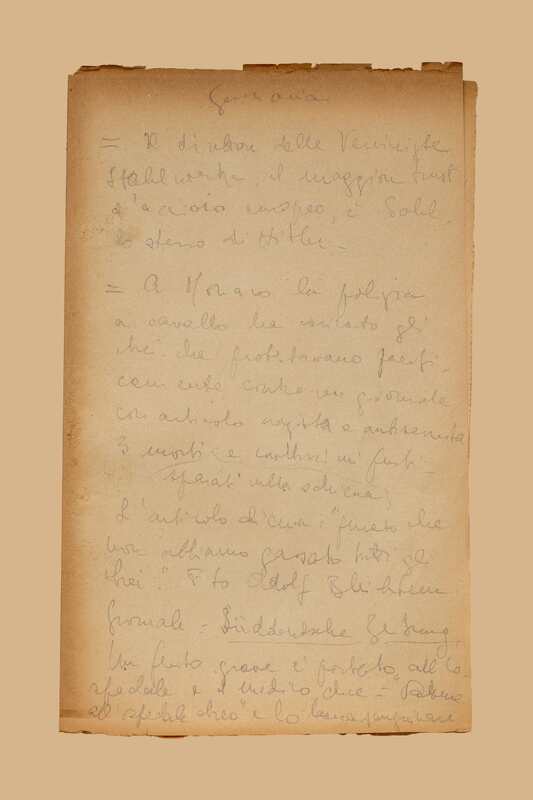 Germania
= Il direttore delle Vereinigte
Stahlwerke, il maggior trust
d'acciaio europeo, è Sohl
lo stesso di Hitler.
= A Monaco la polizia
a cavallo ha caricato gli
ebrei che protestavano pacifi-
camente contro un giornale
con articolo nazista e antisemita
3 morti e moltissimi feriti
sparati nella schiena
L'articolo diceva: "peccato che
non abbiamo gassato tutti gli
ebrei". F.to Adolf
Giornale = Süddeutsche Zeitung
Un ferito grave è portato all'o-
spedale e il medico dice =
all'ospedale ebreo" e lo lascia sanguinare